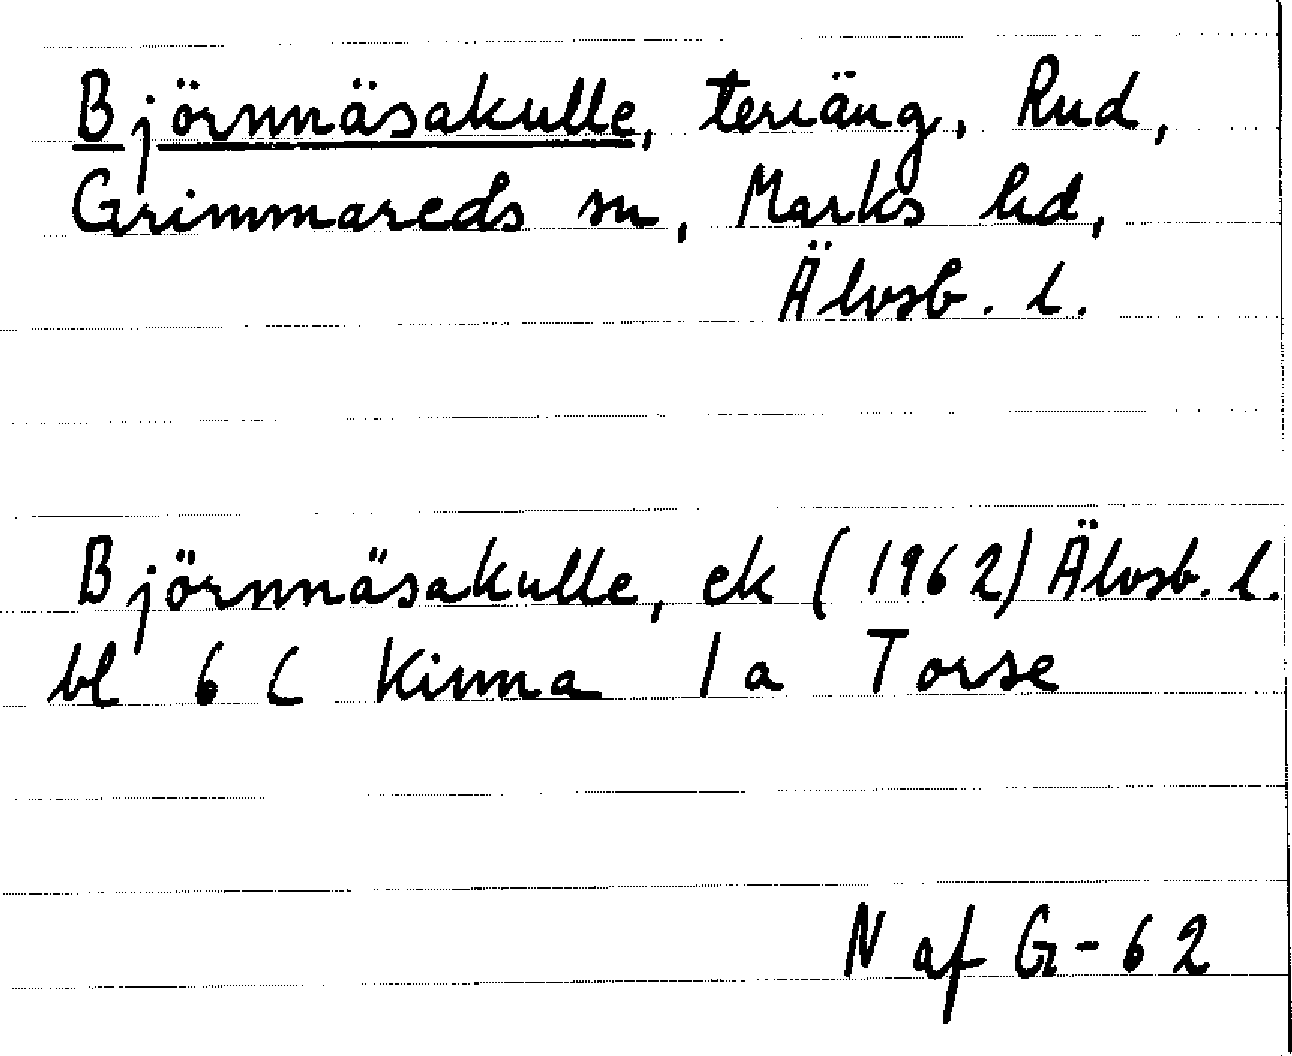 Björnnäsakulle, teriäng, Rud,
Grimmareds sn, Marks hd,
Älvsb. l.
Björnnäsakulle, ek (1962) Älvsb. l.
bl 6 C Kinna 1 a Torse
N af G-62